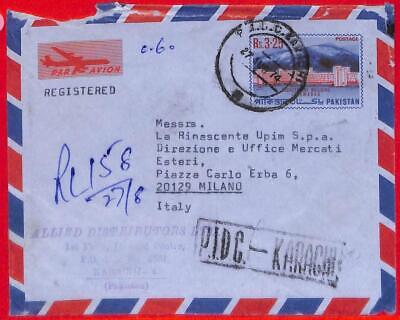 PAR AVION
REGISTERED
0.60
P.I.D.C. KARACHI
27
74
Rs.3.25
POSTAGE
PAKISTAN
Messrs.
La Rinascente Upim S.p.a.
Direzione e Uffice Mercati
Esteri,
Piazza Carlo Erba 6,
20129 MILANO
Italy
RL158
27/8
ALLIED DISTRIBUTORS
P.O.
KARACHI-
(Pakistan)
P.I.D.C. — KARACHI